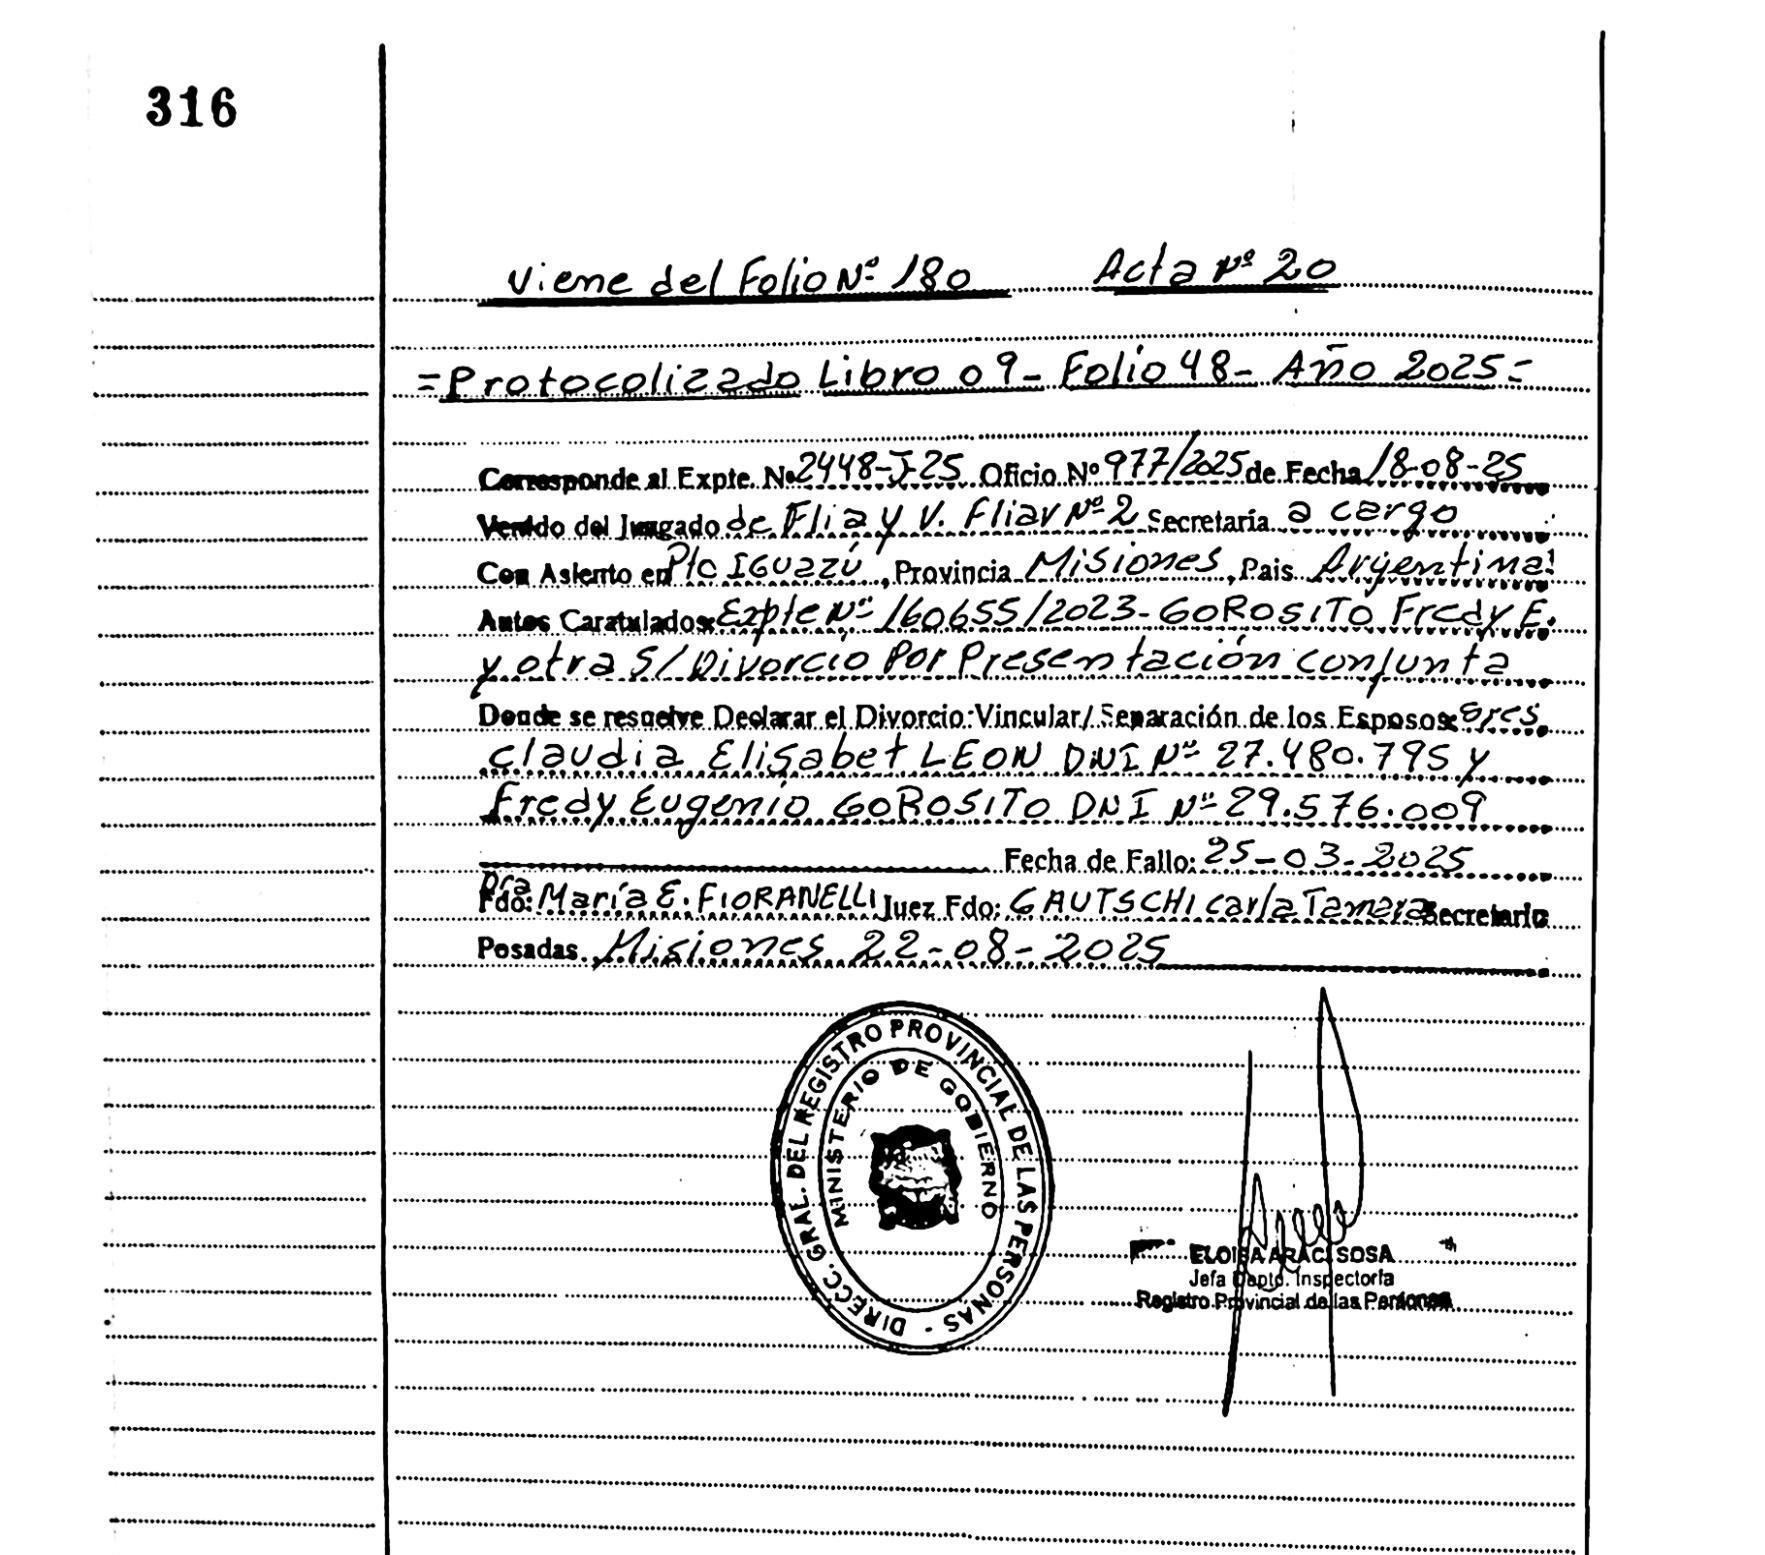 316
Viene del Folio Nº 180 Acta Nº 20
=Protocolizado Libro 09- Folio 48- Año 2025=
Corresponde al Expte. Nº 2448-J-25 Oficio Nº 977/2025 de Fecha 18-08-25
Venido del Juzgado de Flia y V. Fliar Nº 2 Secretaría a cargo
Con Asiento en Pto IGUAZÚ, Provincia Misiones, Pais Argentina
Autos Caratulados: Expte Nº 160655/2023- GOROSITO Fredy E.
y otra S/ Divorcio Por Presentación conjunta
Donde se resuelve Declarar el Divorcio Vincular/ Separación de los Esposos: Sres
Claudia Elisabet LEON DNI Nº 27.480.795 y
Fredy Eugenio GOROSITO DNI Nº 29.576.009
Fecha de Fallo: 25-03-2025
Fdo: Dra María E. FIORANELLI Juez Fdo: GAUTSCHI Carla Tamara Secretario
Posadas Misiones 22-08-2025
DIRECC. GRAL. DEL REGISTRO PROVINCIAL DE LAS PERSONAS -
MINISTERIO DE GOBIERNO
ELOISA ARACI SOSA
Jefa Dapto. Inspectoría
Registro Provincial de las Personas